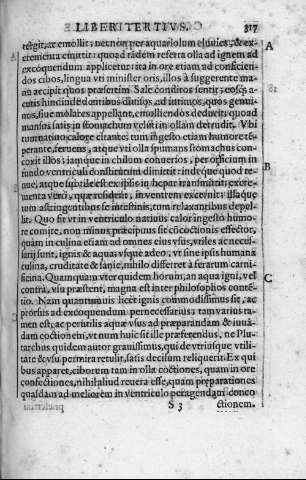 LIBER TERTIVS. 317
tergit, ac emollit: nec non per aquariolum eluuies, & ex-
crementa emittit: quoadrádem referta olla ad ignem ad A
excoquendum applicetur: ita in ore etiam ad conficien-
dos cibos, lingua vti minister oris, illos à suggerente ma-
nu accipit quos præsertim Sale conditos sentit; eosq; a-
cutis hinc inde dentibus diuisos, ad intimos, quos genui-
nos, siue molares appellant, emolliendos deducit: quoad
mansos satis in stomachum velut in ollam detrudit. Vbi
tum natiuo calore citante; tum ingesto etiam humore te-
perante, feruens; atque vti olla spumans stomachus con-
coxit illos; iamque in chilum conuersos, per officium in B
fundo ventriculi constitutum dimittit: indeque quod te-
nue, atque subtile est ex ipsis in hepar transmittit; excre-
menta verò, quæ resident, in ventrem excernit: illaque
tum astringentibus se intestinis, tum relaxantibus depel-
lit. Quo fit vt in ventriculo natiuus calor ingesto humo-
re comite, non minus præcipuus sit cócoctionis effector,
quàm in culina etiam ad omnes eius vsus, vtiles ac necessa-
rij sunt, ignis & aqua: vsque adeo, vt sine ipsis humana
culina, cruditate & sanie, nihilo differet à ferarum carni-
ficina. Quamquam vter quidem horum, an aqua igni, vel C
contrà, vsu præstent, magna est inter philosophos conté-
tio. Nam quantumuis licet ignis commodissimus sit, ac
prorsis ad excoquendum pernecessarius; tam varius ta-
men est; ac perutilis aquæ vsus ad præparandam & iuuá-
dam coctionem, vt num huic sit ille præferendus, ne Plu-
tarchus quidem autor grauissimus, qui de vtriusque vtili-
tate & vsu permira retulit, satis decisum reliquerit. Ex qui
bus apparet, ciborum tam in olla coctiones, quam in ore
confectiones, nihil aliud reuera esse, quàm preparationes
quasdam ad meliorem in ventriculo peragendam conco
S 3 ctionem.